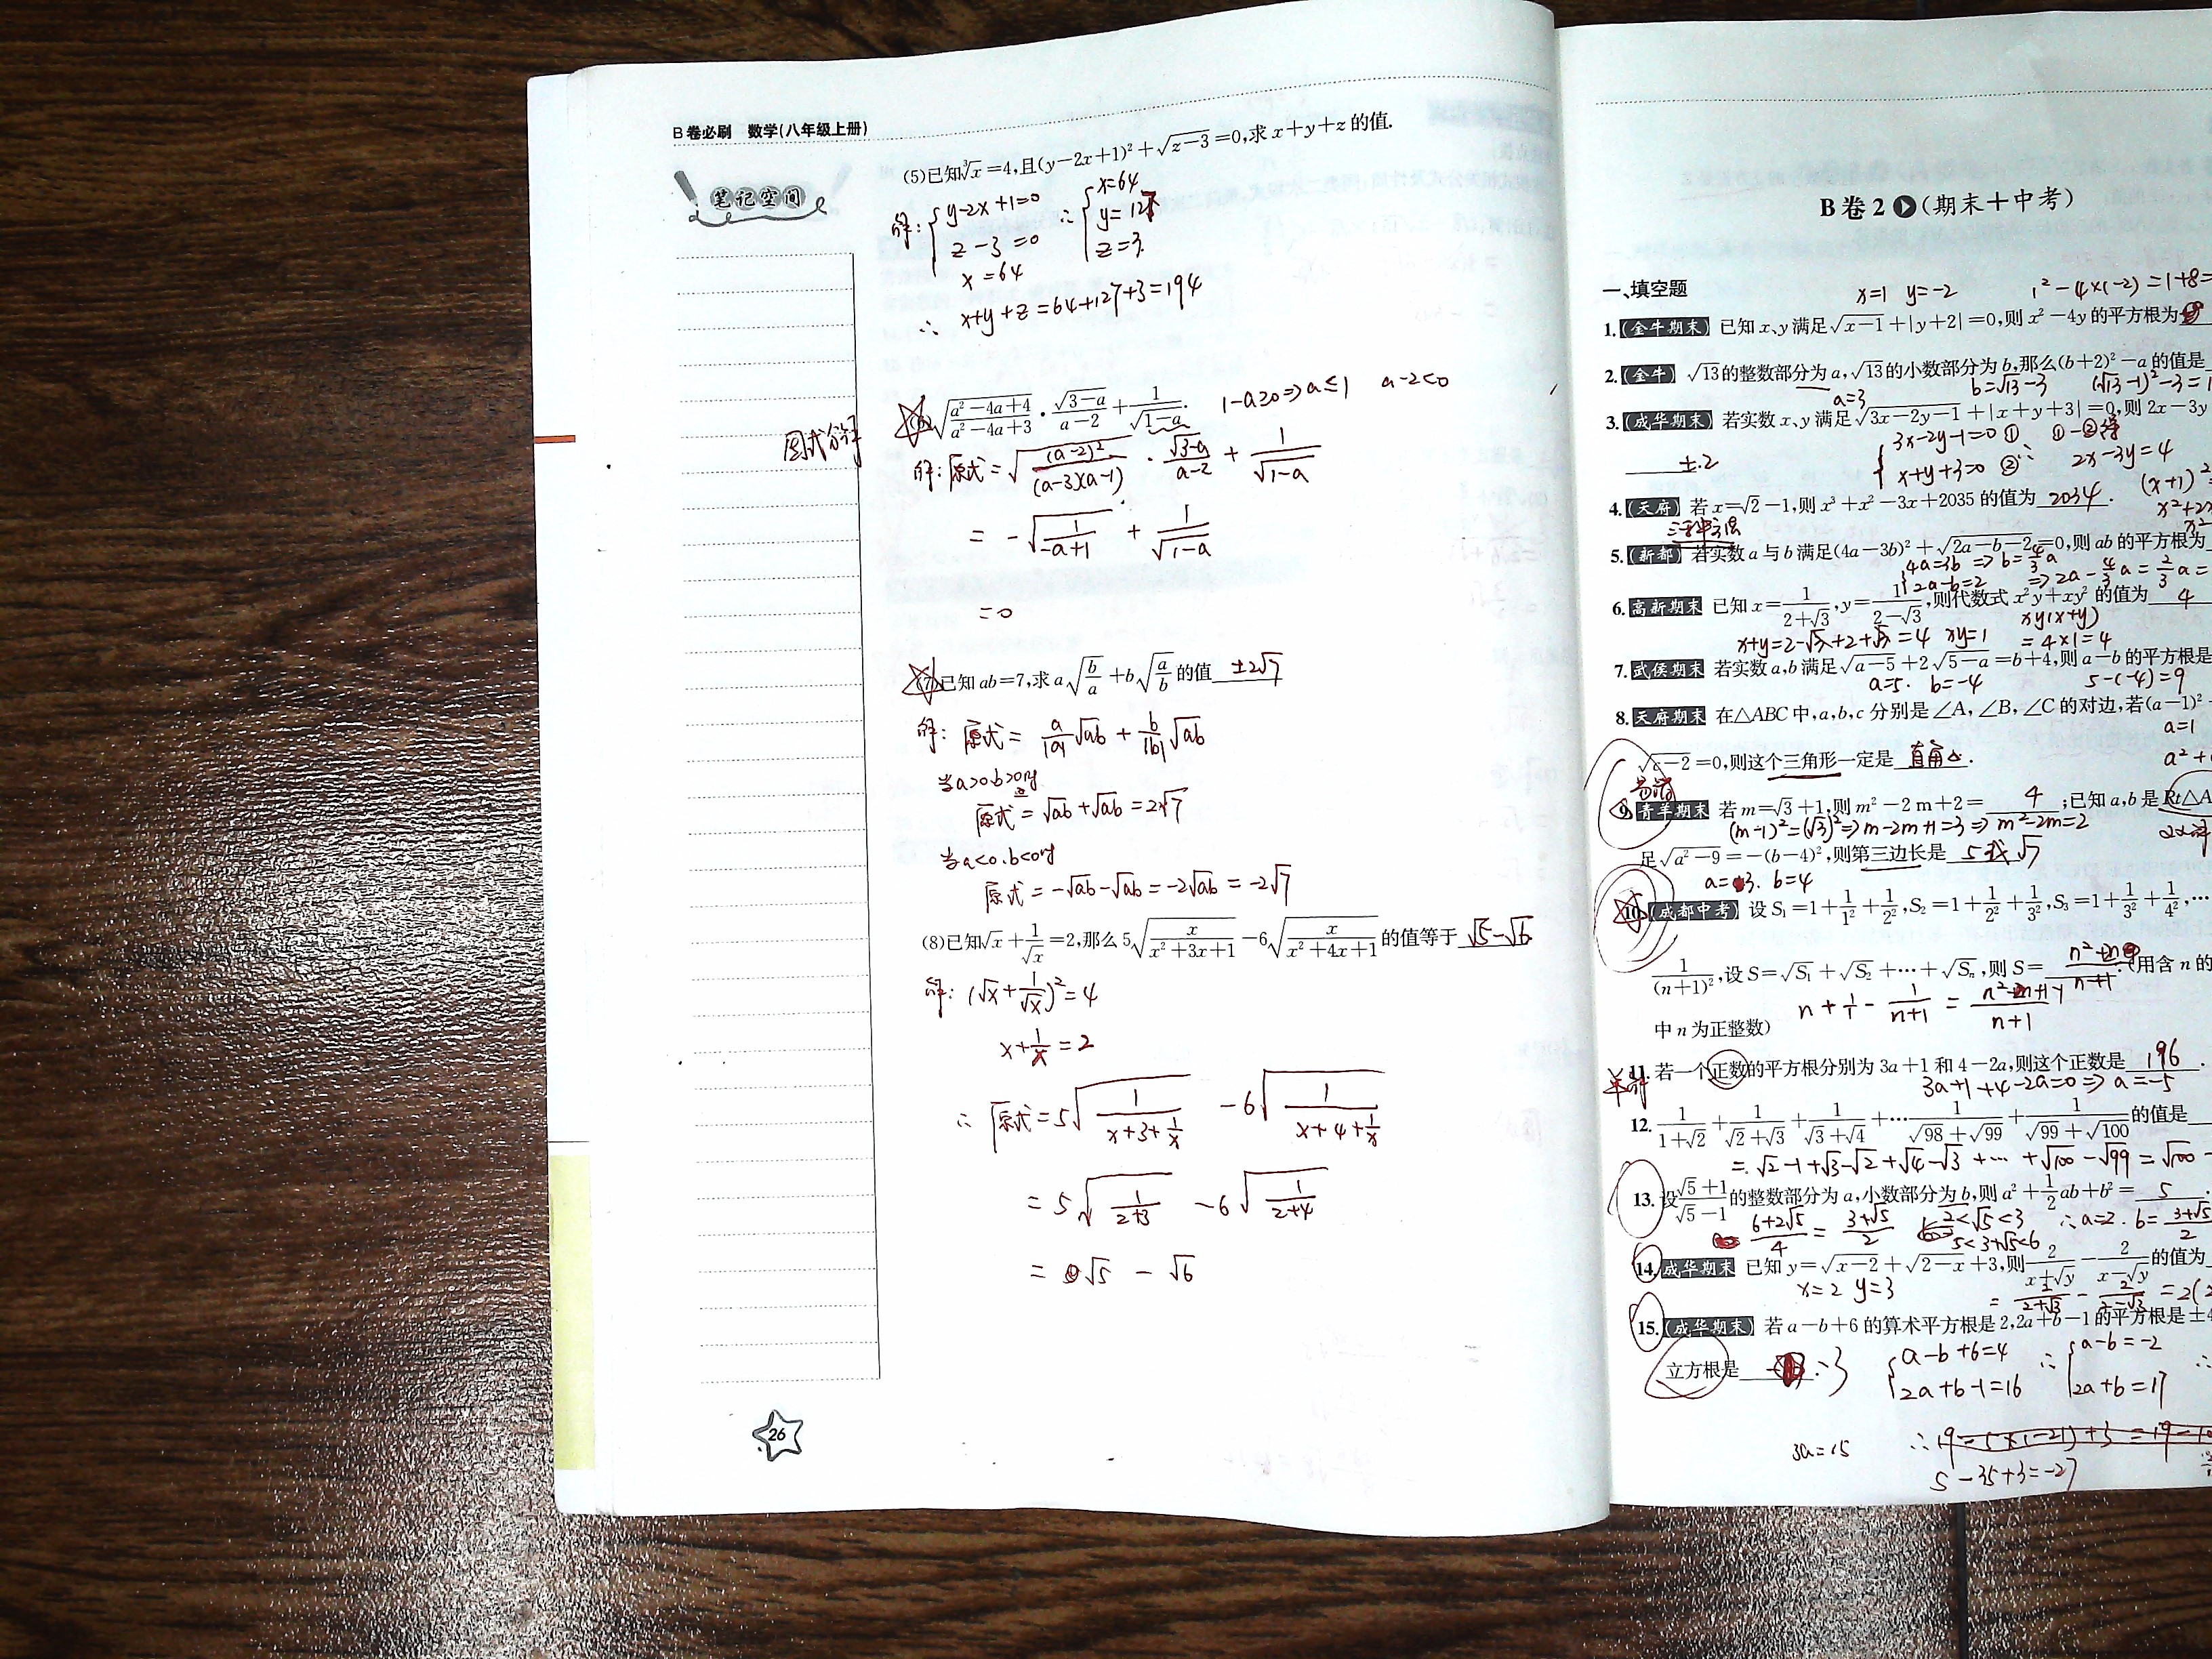 B卷必刷 数学(八年级上册)
笔记空间
(5)已知∛x=4,且(y−2x+1)²+√(z−3)=0,求x+y+z的值.
解:{y−2x+1=0 ∴{x=64
z−3=0 y=127
x=64 z=3.
∴ x+y+z=64+127+3=194
(6)√((a²−4a+4)/(a²−4a+3))·√(3−a)/(a−2)+1/√(1−a). 1−a≥0⇒a≤1 a−2<0
解:原式=√((a−2)²/((a−3)(a−1)))·√(3−a)/(a−2)+1/√(1−a)
=−√(1/(−a+1))+1/√(1−a)
=0
(7)已知ab=7,求a√(b/a)+b√(a/b)的值 ±2√7
解:原式=a/|a|√ab+b/|b|√ab
当a>0.b>0时
原式=√ab+√ab=2√7
当a<0.b<0时
原式=−√ab−√ab=−2√ab=−2√7
(8)已知√x+1/√x=2,那么5√(x/(x²+3x+1))−6√(x/(x²+4x+1))的值等于 √5−√6
解:(√x+1/√x)²=4
x+1/x=2
∴原式=5√(1/(x+3+1/x))−6√(1/(x+4+1/x))
=5√(1/(2+3))−6√(1/(2+4))
=√5−√6
26
B卷2 (期末+中考)
一、填空题 x=1 y=−2 1²−4×(−2)=1+8=
1.(金牛期末) 已知x、y满足√(x−1)+|y+2|=0,则x²−4y的平方根为
2.(金牛) √13的整数部分为a,√13的小数部分为b,那么(b+2)²−a的值是
a=3 b=√13−3 (√13−1)²−3=1
3.(成华期末) 若实数x、y满足√(3x−2y−1)+|x+y+3|=0,则2x−3y
±2 {3x−2y−1=0① ①−②得
x+y+3=0② ∵ 2x−3y=4
4.(天府) 若x=√2−1,则x³+x²−3x+2035的值为 2034. (x+1)²
三种方法 x²+2x
5.(新都) 若实数a与b满足(4a−3b)²+√(2a−b−2)=0,则ab的平方根为
4a=3b⇒b=4/3a
2a−b=2 ⇒2a−4/3a=2/3a=
6.高新期末 已知x=1/(2+√3),y=1/(2−√3),则代数式x²y+xy²的值为 4
xy(x+y)
x+y=2−√3+2+√3=4 xy=1 =4×1=4
7.武侯期末 若实数a,b满足√(a−5)+2√(5−a)=b+4,则a−b的平方根是
a=5. b=−4 5−(−4)=9
8.天府期末 在△ABC中,a,b,c分别是∠A,∠B,∠C的对边,若(a−1)²
a=1
√(c−2)=0,则这个三角形一定是 直角△. a²+
易错
9.青羊期末 若m=√3+1,则m²−2m+2= 4 ;已知a,b是Rt△A
(m−1)²=(√3)²⇒m−2m+1=3⇒m²−2m=2
足√(a²−9)=−(b−4)²,则第三边长是 5或√7
a=3. b=4
10.(成都中考) 设S₁=1+1/1²+1/2²,S₂=1+1/2²+1/3²,S₃=1+1/3²+1/4²,…
1/(n+1)²,设S=√S₁+√S₂+…+√Sₙ,则S= (n²+2n)/(n+1) (用含n的
中n为正整数)
11.若一个正数的平方根分别为3a+1和4−2a,则这个正数是 196 .
3a+1+4−2a=0⇒a=−5
12.1/(1+√2)+1/(√2+√3)+1/(√3+√4)+…1/(√98+√99)+1/(√99+√100)的值是
=√2−1+√3−√2+√4−√3+…+√100−√99=√100−
13.设(√5+1)/(√5−1)的整数部分为a,小数部分为b,则a²+1/2ab+b²= 5 .
(6+2√5)/4=(3+√5)/2 2<√5<3 ∴a=2. b=(3+√5)/2
5<3+√5<6
14.成华期末 已知y=√(x−2)+√(2−x)+3,则2/(x+√y)−2/(x−√y)的值为
x=2 y=3 =2/(2+√3)−2/(2−√3)=2(2
15.(成华期末) 若a−b+6的算术平方根是2,2a+b−1的平方根是±4
立方根是 −3 {a−b+6=4 ∴{a−b=−2
2a+b−1=16 2a+b=17
3a=15
5−35+3=−27